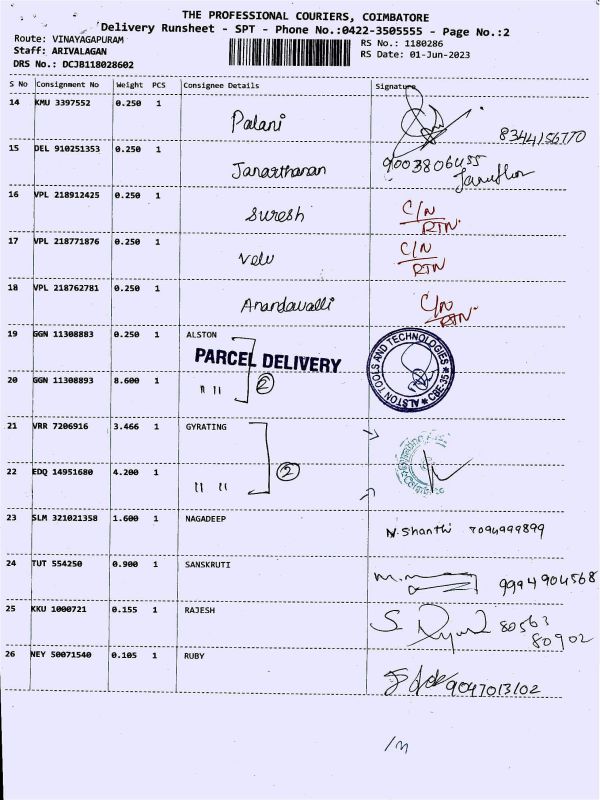 THE PROFESSIONAL COURIERS, COIMBATORE
Delivery Runsheet - SPT - Phone No.:0422-3505555 - Page No.:2
Route: VINAYAGAPURAM
RS No.: 1180286
Staff: ARIVALAGAN
RS Date: 01-Jun-2023
DRS No.: DCJB118028602
S No Consignment No Weight PCS Consignee Details Signature
14 KMU 3397552 0.250 1 Palani 8344156770
15 DEL 910251353 0.250 1 Janarthanan 9003806455
16 VPL 218912425 0.250 1 Suresh C/N RTN.
17 VPL 218771876 0.250 1 Velu C/N RTN
18 VPL 218762781 0.250 1 Anandavalli C/N RTN.
19 GGN 11308883 0.250 1 ALSTON
PARCEL DELIVERY
ALSTON TOOLS AND TECHNOLOGIES CBE-35
20 GGN 11308893 8.600 1 " " 2
21 VRR 7206916 3.466 1 GYRATING
22 EDQ 14951680 4.200 1 " " 2
23 SLM 321021358 1.600 1 NAGADEEP N.Shanthi 7094999899
24 TUT 554250 0.900 1 SANSKRUTI 9994904568
25 KKU 1000721 0.155 1 RAJESH 80563
80902
26 NEY 50071540 0.105 1 RUBY 9047013102